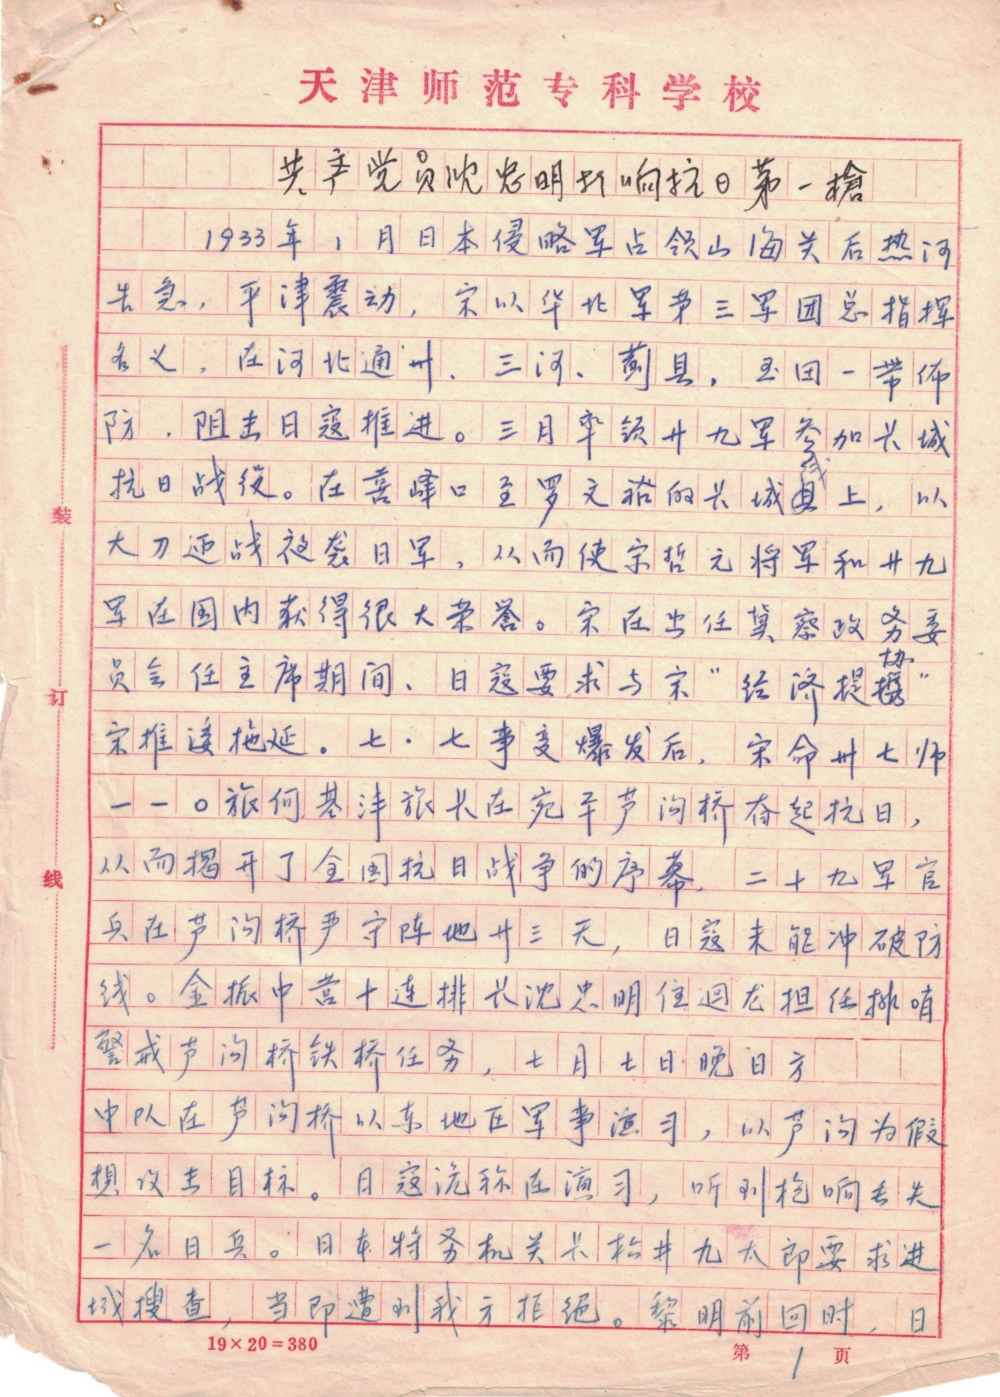 天津师范专科学校
共产党员沈忠明打响抗日第一槍
1933年1月日本侵略军占领山海关后热河
告急，平津震动，宋以华北军第三军团总指挥
名义，在河北通州、三河、蓟县，玉田一带佈
防，阻击日寇推进。三月率领廿九军参加长城
抗日战役。在喜峰口至罗文裕的长城线上，以
大刀迎战夜袭日军，从而使宋哲元将军和廿九
军在国内获得很大荣誉。宋在出任冀察政务委
员会任主席期间、日寇要求与宋“经济提携”协
宋推诿拖延。七·七事变爆发后，宋命卅七师
一一〇旅何基沣旅长在宛平芦沟桥奋起抗日，
从而揭开了全国抗日战争的序幕，二十九军官
兵在芦沟桥严守阵地廿三天，日寇未能冲破防
线。金振中营十连排长沈忠明住迴龙担任排哨
警戒芦沟桥铁桥任务，七月七日晚日方
中队在芦沟桥以东地区军事演习，以芦沟为假
想攻击目标。日寇谎称在演习，听到枪响丢失
一名日兵。日本特务机关长松井九太郎要求进
城搜查，当即遭到我方拒绝。黎明前回时，日
装
订
线
19×20=380
第1页